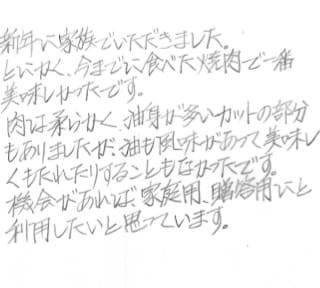 新年に家族でいただきました。
とにかく、今までに食べた焼肉で一番
美味しかったです。
肉は柔らかく、油身が多いカットの部分
もありましたが、油も風味があって美味し
くもたれたりすることもなかったです。
機会があれば、家庭用、贈答用にと
利用したいと思っています。